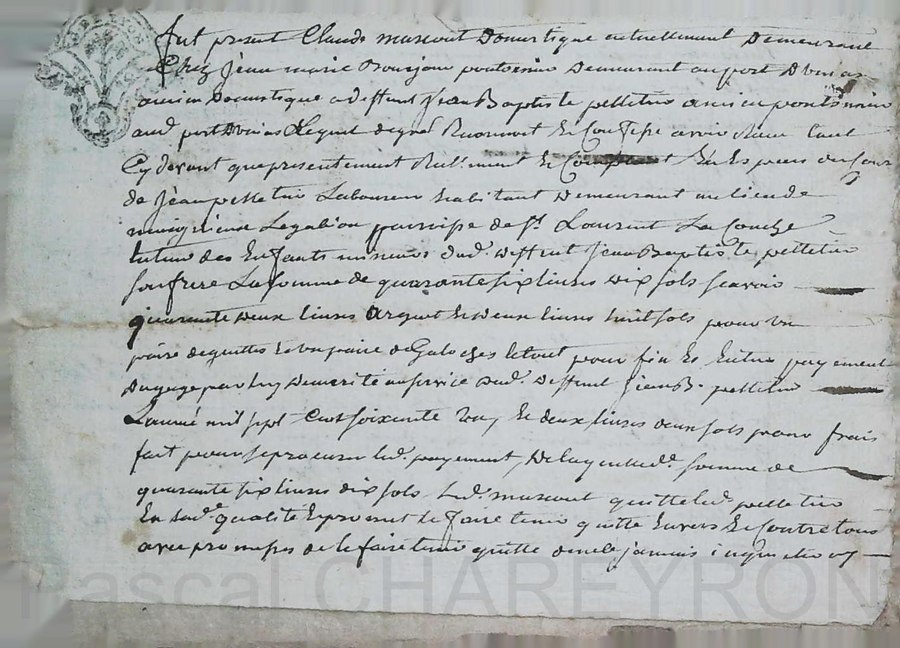 fut present Claude mascout Domestique actuellement Demeurant
Chez Jean marie Bourjon pontonnier Demeurant au port
ancien Domestique a deffunt Jean Baptiste pelletier ancien pontonnier
aud. port Lequel de gré
Cy devant que presentement Reellement Et Comptant
de Jean pelletier Laboureur habitant Demeurant au lieu de
parroisse de St. Laurent La Conche
tuteur des Enfants mineurs dud. deffunt Jean Baptiste pelletier
son frere La somme de quarante six livres dix sols scavoir
quarante deux livres argent Et deux livres huit sols pour un
paire de guettes Et un paire de Galoches le tout pour fin Et Entier payement
Du gage par luy Demerité au service dud. Deffunt Jean B. pelletier
L'année mil sept Cent soixante Et deux livres deux sols pour frais
fait pour se procurer led. payement, De laquelle d. somme de
quarante six livres dix sols led. mascout quitte led. pelletier
En sad. qualité Et promet le faire tenir quitte Envers Et Contre tous
avec promesses de le faire tenir quitte
Pascal CHAREYRON